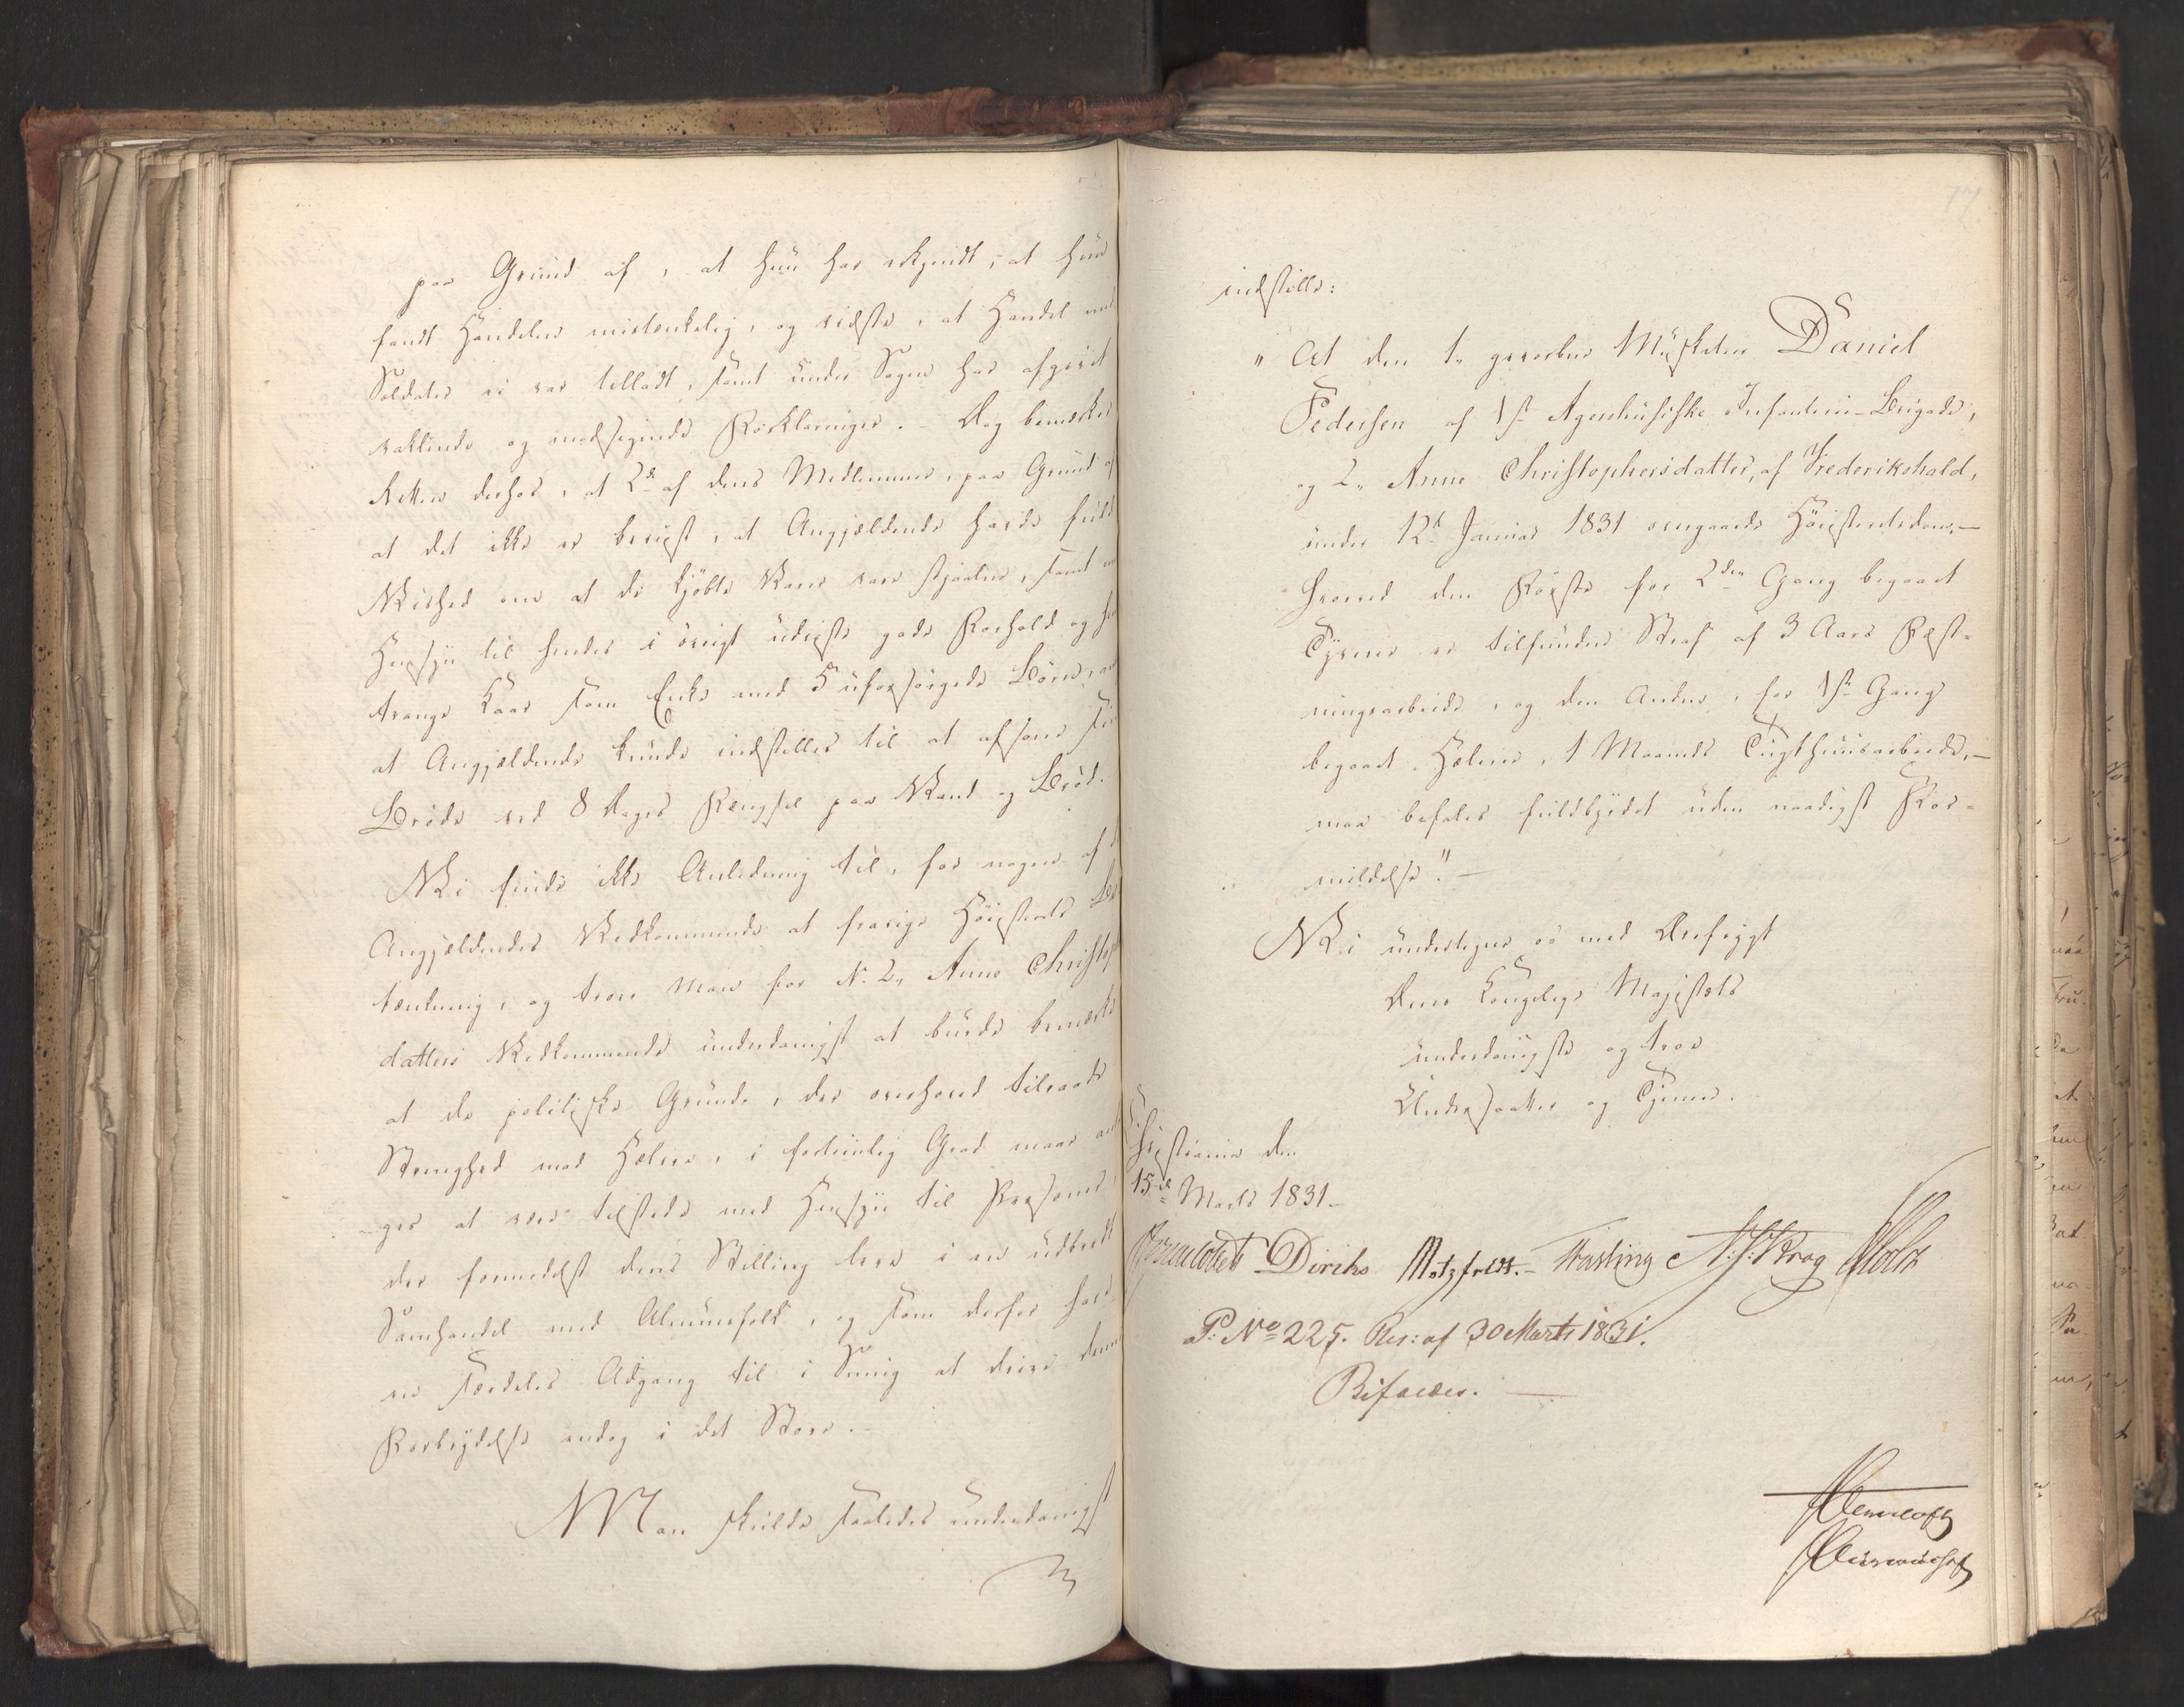 paa Grund af, at hun har erkjendt, at hun
fandt Handelen mistænkelig, og vidste, at Handel med
Soldater ei var tilladt, samt under Sagen har afgivet
vaklende og modsigende Forklaringer. – Dog bemærker
Retten derhos, at 2de af dens Medlemmer, paa Grund af
at det ikke er beviist, at Angjældende havde fuld
Vished om at de kjøbte Varer vare stjaalne, samt med
Hensyn til hendes i øvrigt udviste gode Forhold og hendes
trange Kaar som Enke med 5 uforsørgede Børn,
at Angjældende kunde indstilles til at afsone sin
Brøde ved 8 Dages Fængsel paa Vand og Brød.
Vi finde ikke Anledning til, for nogen af de
Angjældendes Vedkommende at fravige Høiesterets Be
tænkning, og troer man for N. 2, Anne Christophers
datters Vedkommende underdanigst at burde bemærke
at de politiske Grunde, der overhoved tilraade
Strenghed mod Hælere, i fortrinlig Grad maae an
ges at være tilstede med Hensyn til Personer,
der formedelst deres Stilling leve i en udbredt
Samhandel med Almuesfolk, og som derfor have
en særdeles Adgang til i Smug at drive denne
Forbrydelse endog i det Store. –
Man skulde saaledes underdanigst
77
indstille:
" At den 1, gevorbne Musketeer Daniel
Pedersen af 1ste Agershusiske Infanterie-Brigade,
og 2, Anne Christophersdatter, af Frederikshald,
under 12te Januar 1831 overgaaede Høiesteretsdom, –
hvorved den Første for 2den Gang begaaet
Tyverie er tilfunden Straf af 3 Aars Fæst-
ningsarbeide, og den Anden, for 1ste Gang
begaaet Hæleri, 1 Maaneds Tugthuusarbeide, –
maa befales fuldbyrdet uden naadigst For-
mildelse". –
Vi undertegne os med Ærefrygt
Deres Kongelige Majestæts
underdanigste og troe
Undersaatter og Tjenere.
Christiania den
15de Marts 1831. –
Diriks Motzfeldt. – Fasting N. J. Krog Holst
P: No 225. Res: af 30 Marts 1831.
Bifaldes. –